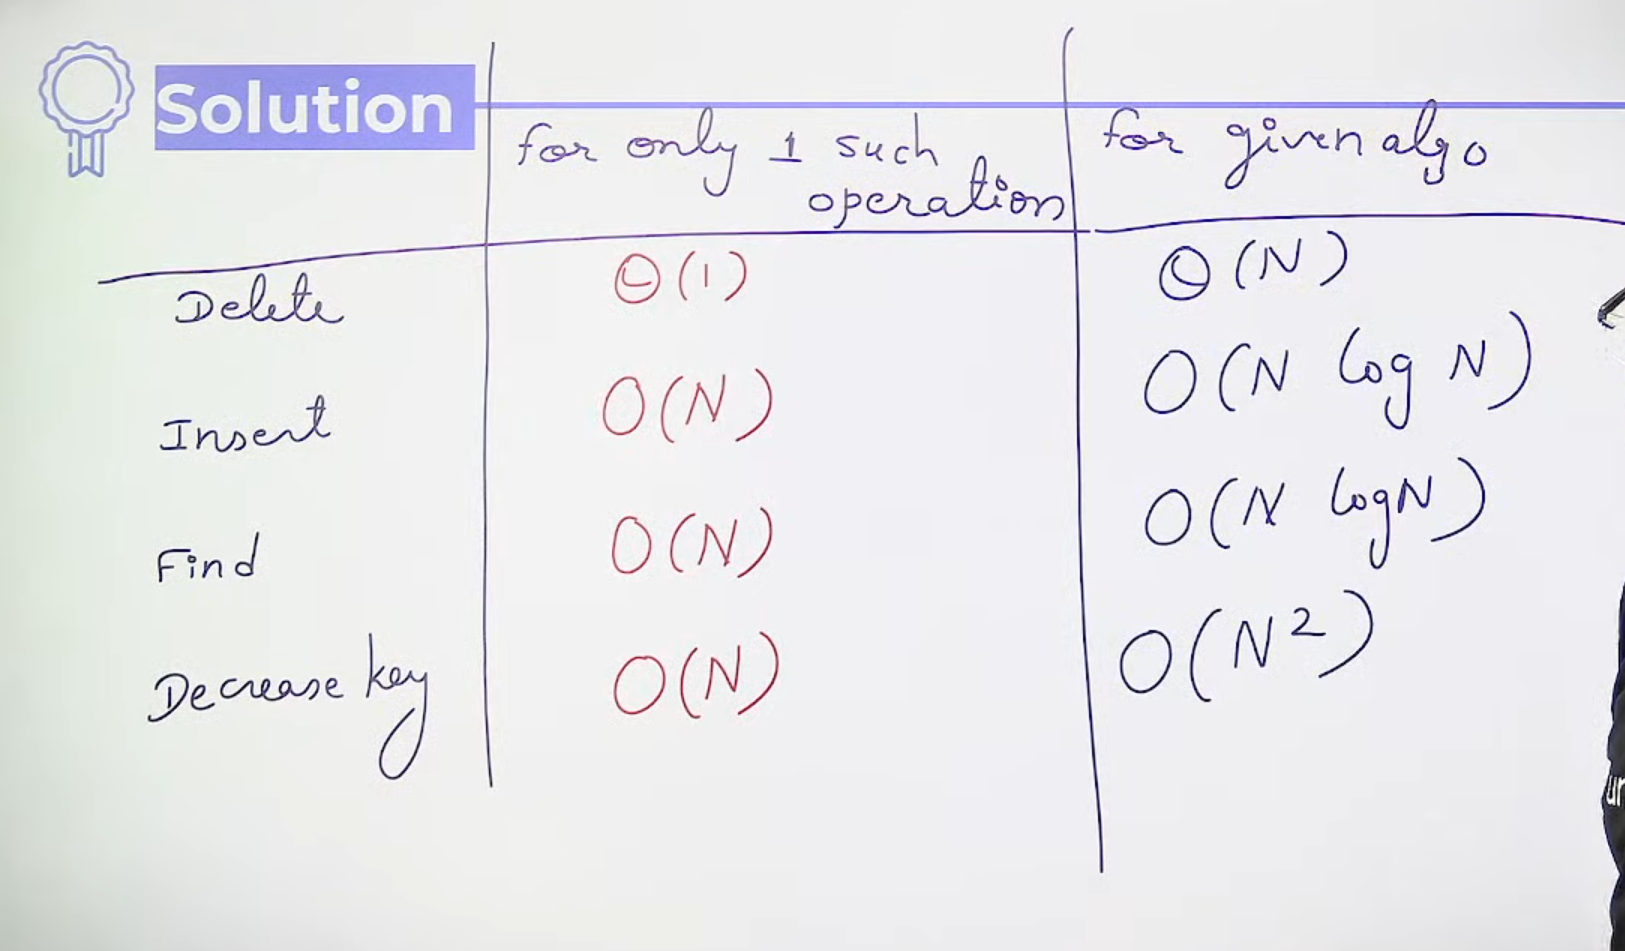 Solution
for only 1 such operation
for given algo
Delete Θ(1) Θ(N)
Insert O(N) O(N log N)
Find O(N) O(N logN)
Decrease key O(N) O(N²)